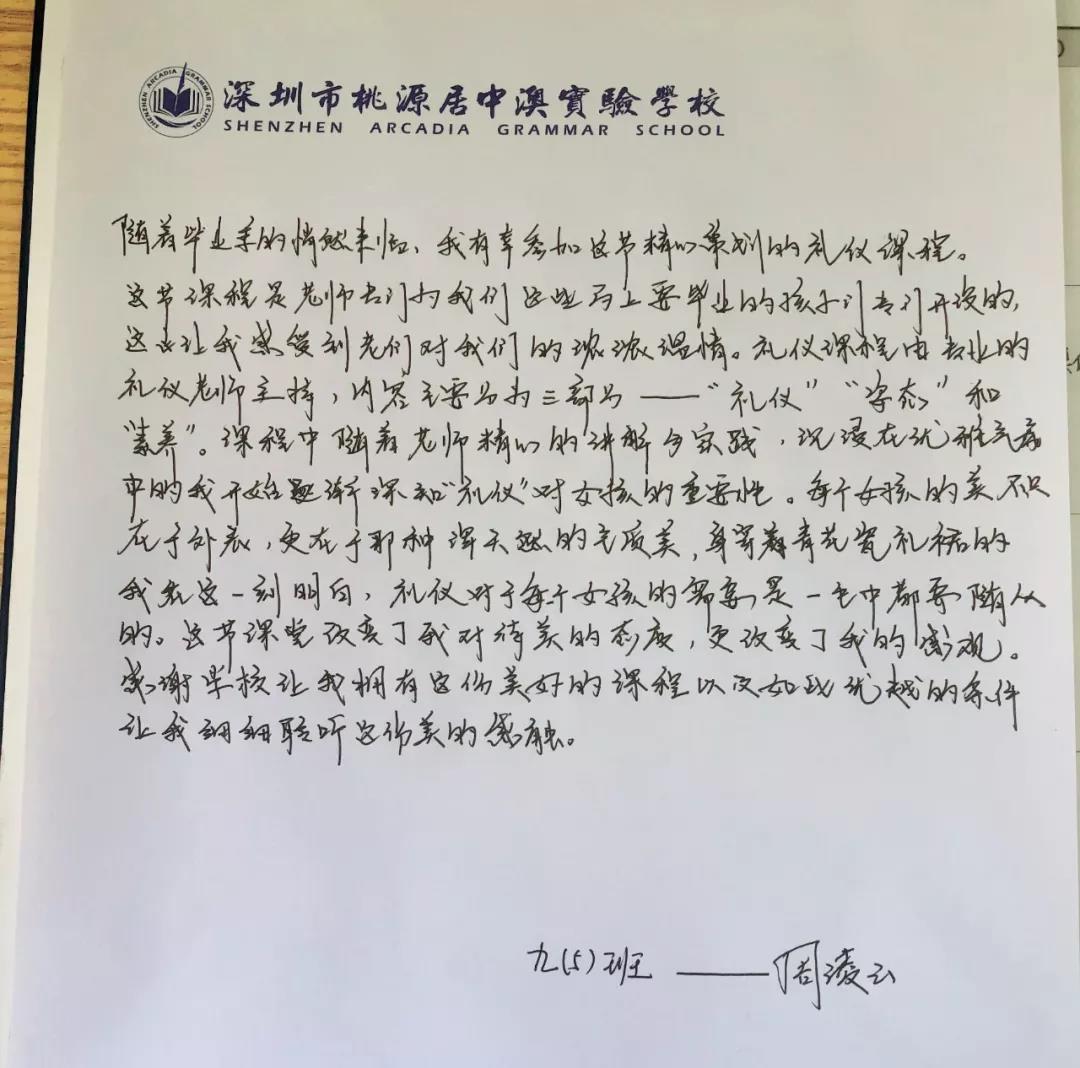 深圳市桃源居中澳實驗學校
SHENZHEN ARCADIA GRAMMAR SCHOOL
SHENZHEN ARCADIA GRAMMAR SCHOOL
随着毕业季的悄然来临、我有幸参加这节精心策划的礼仪课程。
这节课程是老师专门为我们这些马上要毕业的孩子们专门开设的,
这也让我感受到老们对我们的浓浓温情。礼仪课程由专业的
礼仪老师主持,内容主要分为三部分——“礼仪”“字态”和
“素养”。课程中随着老师精心的讲解与实践,沉浸在优雅气氛
中的我开始逐渐深知“礼仪”对女孩的重要性。每个女孩的美不只
在于外表,更在于那种浑天然的气质美,身穿着青花瓷礼裙的
我在这一刻明白,礼仪对于每个女孩的需要是一生中都要随从
的。这节课堂改变了我对待美的态度,更改变了我的感观。
感谢学校让我拥有这份美好的课程以及如此优越的条件
让我细细聆听这份美的感触。
九(5)班 ——周凌云